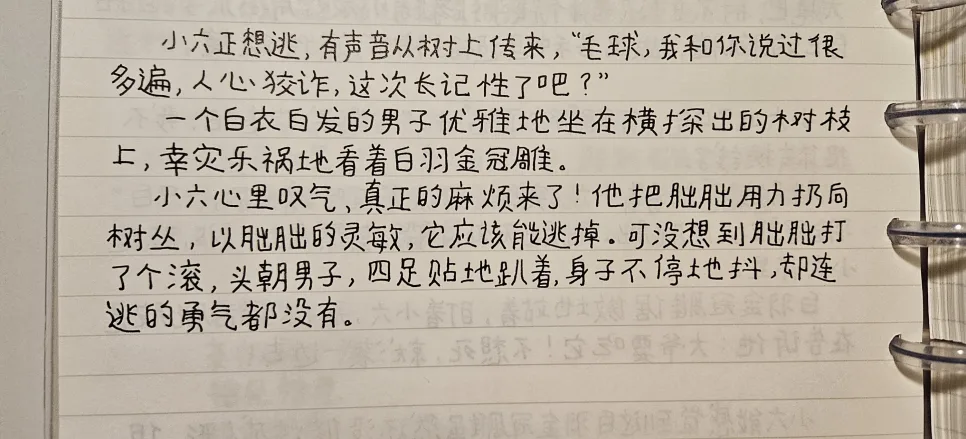 小六正想逃，有声音从树上传来，“毛球，我和你说过很
多遍，人心狡诈，这次长记性了吧？”
一个白衣白发的男子优雅地坐在横探出的树枝
上，幸灾乐祸地看着白羽金冠雕。
小六心里叹气，真正的麻烦来了！他把朏朏用力扔向
树丛，以朏朏的灵敏，它应该能逃掉。可没想到朏朏打
了个滚，头朝男子，四足贴地趴着，身子不停地抖，却连
逃的勇气都没有。